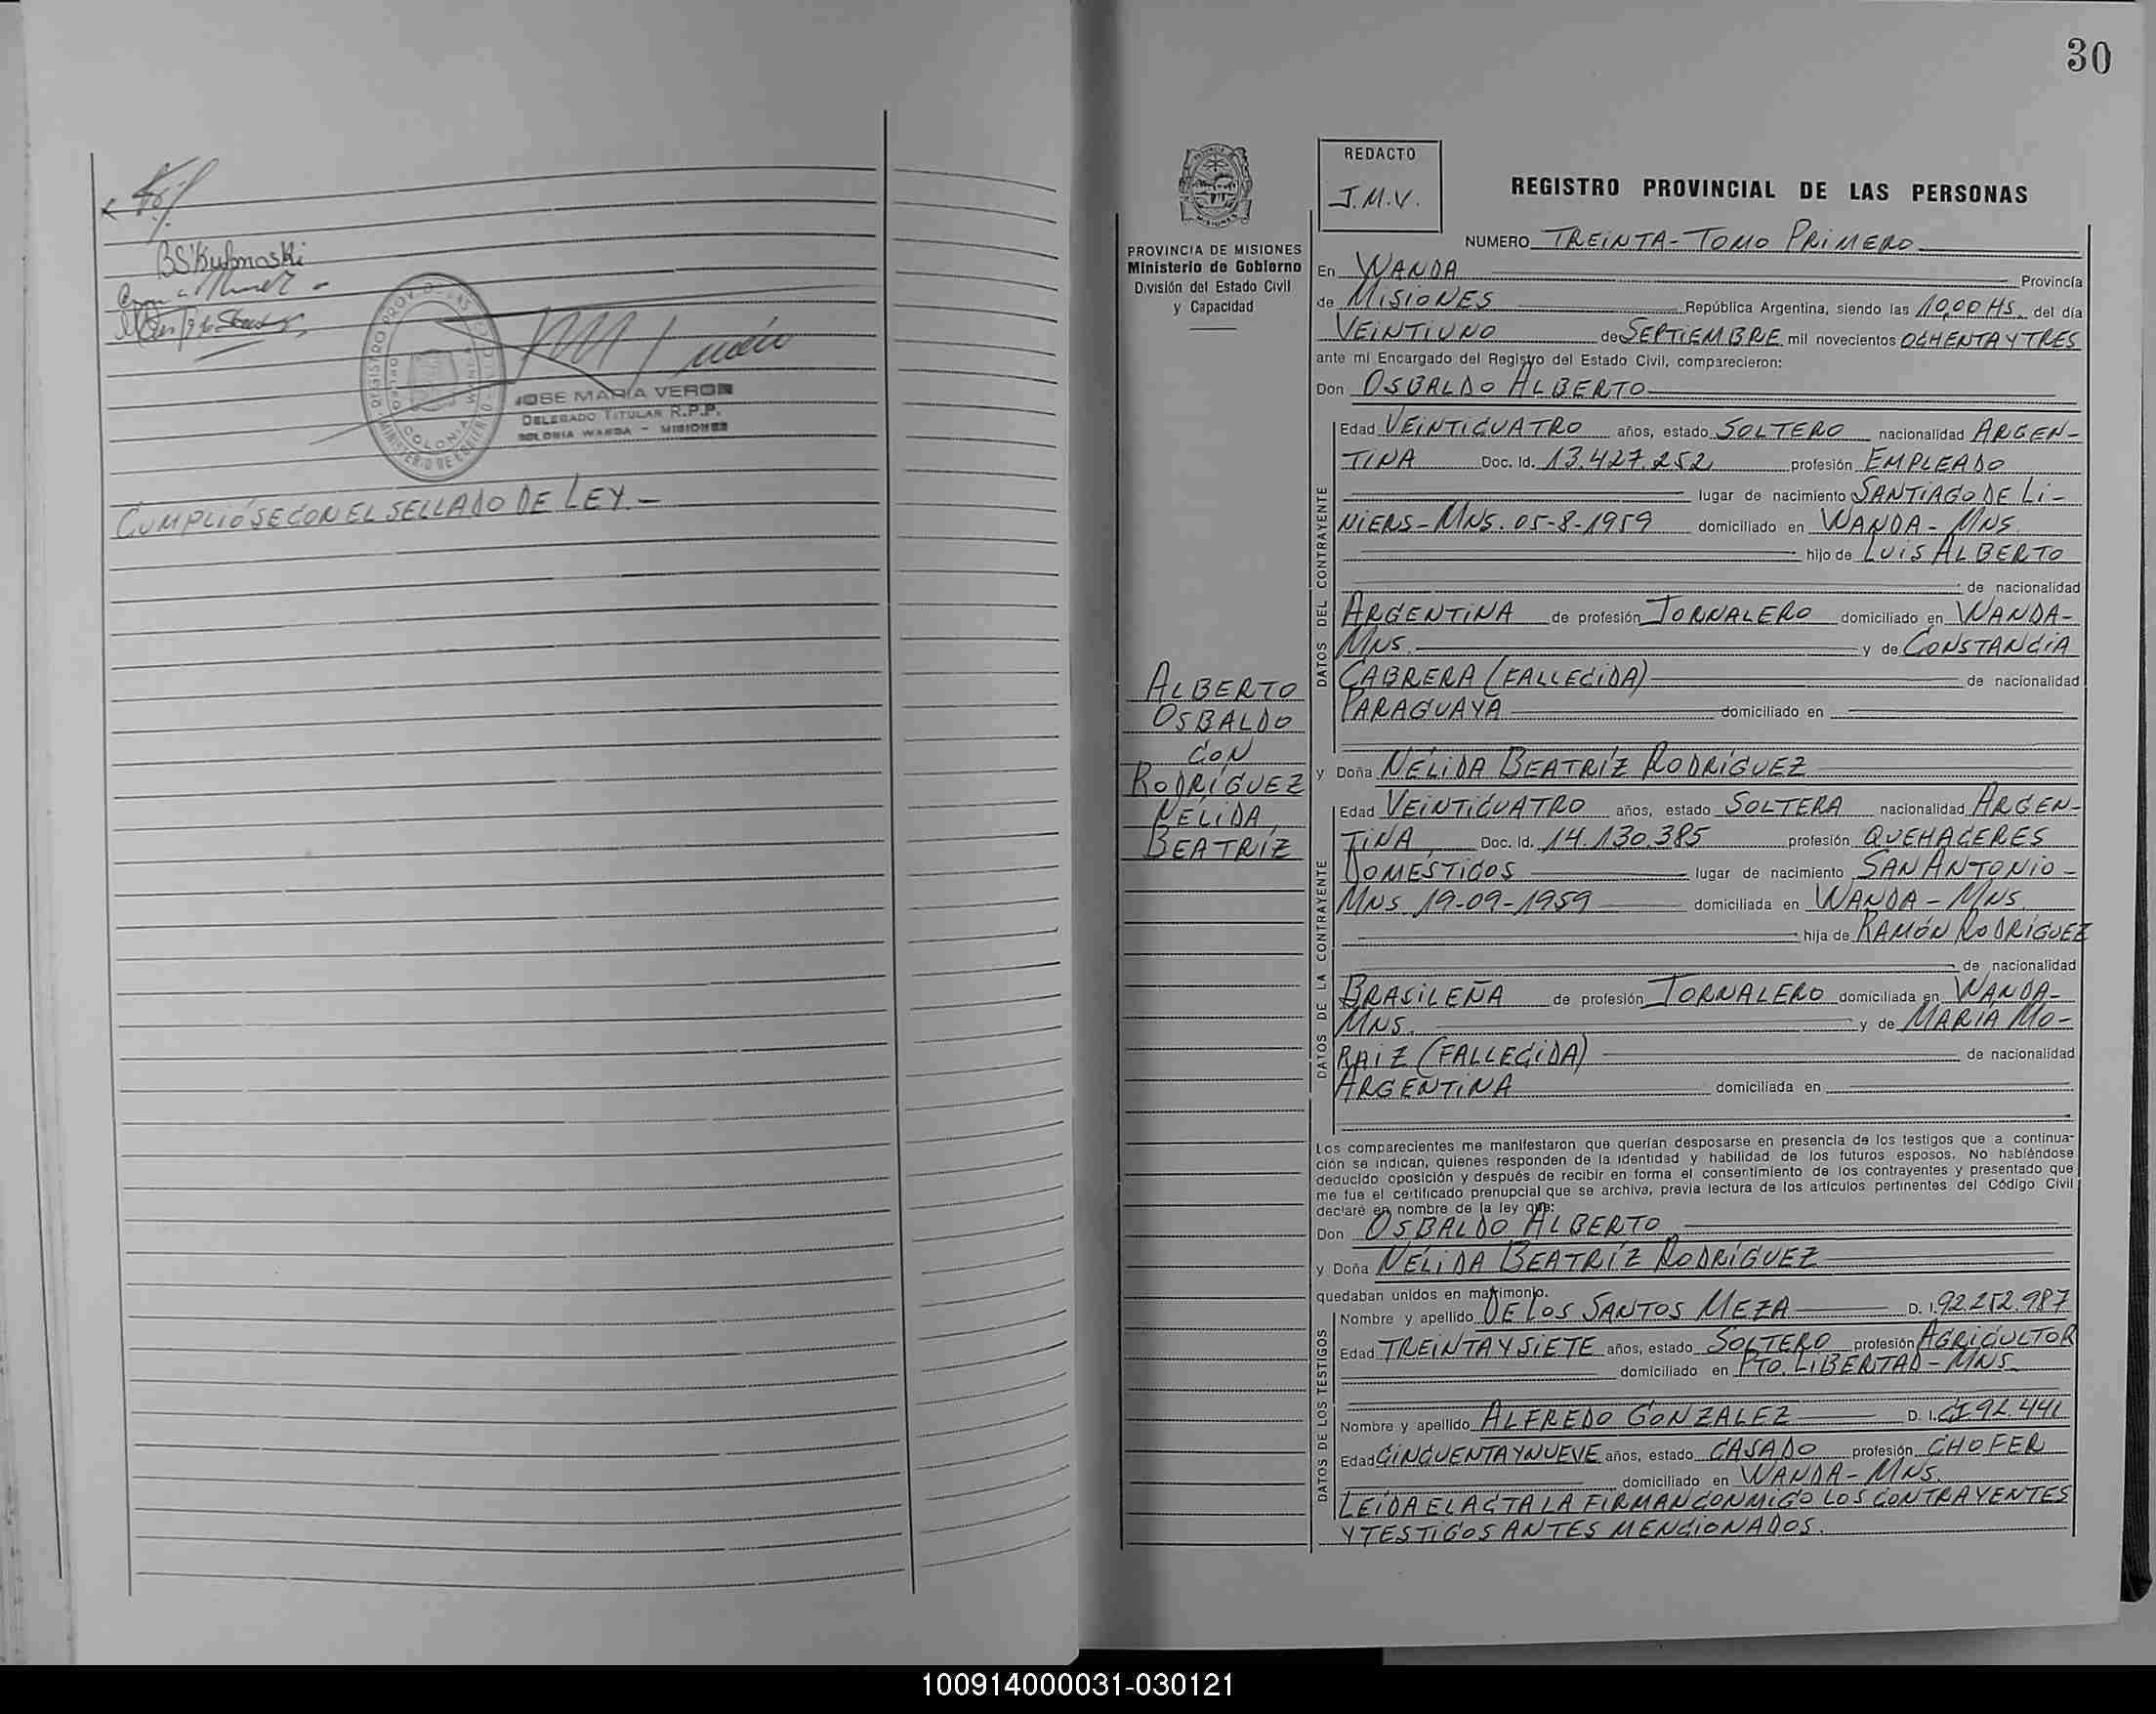 BSKubnoski
JOSE MARIA VERON
DELEGADO TITULAR R.P.P.
COLONIA WANDA - MISIONES
CUMPLIÓSE CON EL SELLADO DE LEY.-
30
PROVINCIA DE MISIONES
Ministerio de Gobierno
División del Estado Civil
y Capacidad
ALBERTO
OSBALDO
CON
RODRÍGUEZ
NÉLIDA
BEATRÍZ
REDACTO
J.M.V.
REGISTRO PROVINCIAL DE LAS PERSONAS
NUMERO TREINTA-TOMO PRIMERO
En WANDA Provincia
de MISIONES República Argentina, siendo las 10,00 HS. del día
VEINTIUNO de SEPTIEMBRE mil novecientos OCHENTA Y TRES
ante mí Encargado del Registro del Estado Civil, comparecieron:
Don OSBALDO ALBERTO
DATOS DEL CONTRAYENTE
Edad VEINTICUATRO años, estado SOLTERO nacionalidad ARGEN-
TINA Doc. Id. 13.427.252 profesión EMPLEADO
lugar de nacimiento SANTIAGO DE LI-
NIERS-MNS. 05-8-1959 domiciliado en WANDA-MNS.
hijo de LUIS ALBERTO
de nacionalidad
ARGENTINA de profesión JORNALERO domiciliado en WANDA-
MNS. y de CONSTANCIA
CABRERA (FALLECIDA) de nacionalidad
PARAGUAYA domiciliado en
y Doña NÉLIDA BEATRÍZ RODRÍGUEZ
DATOS DE LA CONTRAYENTE
Edad VEINTICUATRO años, estado SOLTERA nacionalidad ARGEN-
TINA Doc. Id. 14.130.385 profesión QUEHACERES
DOMÉSTICOS lugar de nacimiento SAN ANTONIO-
MNS. 19-09-1959 domiciliada en WANDA-MNS.
hija de RAMÓN RODRÍGUEZ
de nacionalidad
BRASILEÑA de profesión JORNALERO domiciliada en WANDA-
MNS. y de MARIA MO-
RAIZ (FALLECIDA) de nacionalidad
ARGENTINA domiciliada en
Los comparecientes me manifestaron que querían desposarse en presencia de los testigos que a continua-
ción se indican, quienes responden de la identidad y habilidad de los futuros esposos. No habiéndose
deducido oposición y después de recibir en forma el consentimiento de los contrayentes y presentado que
me fue el certificado prenupcial que se archiva, previa lectura de los artículos pertinentes del Código Civil
declaré en nombre de la ley que:
Don OSBALDO ALBERTO
y Doña NÉLIDA BEATRÍZ RODRÍGUEZ
quedaban unidos en matrimonio.
DATOS DE LOS TESTIGOS
Nombre y apellido DE LOS SANTOS MEZA D. I. 92.252.987
Edad TREINTA Y SIETE años, estado SOLTERO profesión AGRICULTOR
domiciliado en PTO. LIBERTAD-MNS.
Nombre y apellido ALFREDO GONZALEZ D. I.
Edad CINCUENTA Y NUEVE años, estado CASADO profesión CHOFER
domiciliado en WANDA-MNS.
LEÍDA EL ACTA LA FIRMAN CONMIGO LOS CONTRAYENTES
Y TESTIGOS ANTES MENCIONADOS.
100914000031-030121